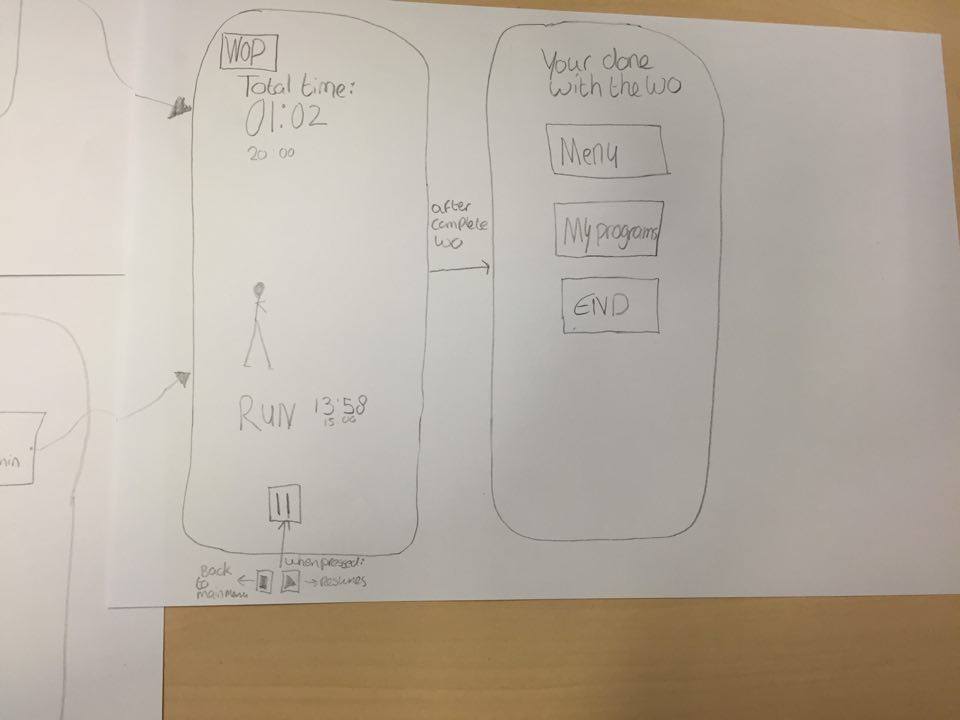 WOP
Total time:
01:02
20:00
RUN 13:58
15:00
when pressed:
Back
to
main Menu
Resumes
after
complete
WO
Your done
with the WO
Menu
My programs
END